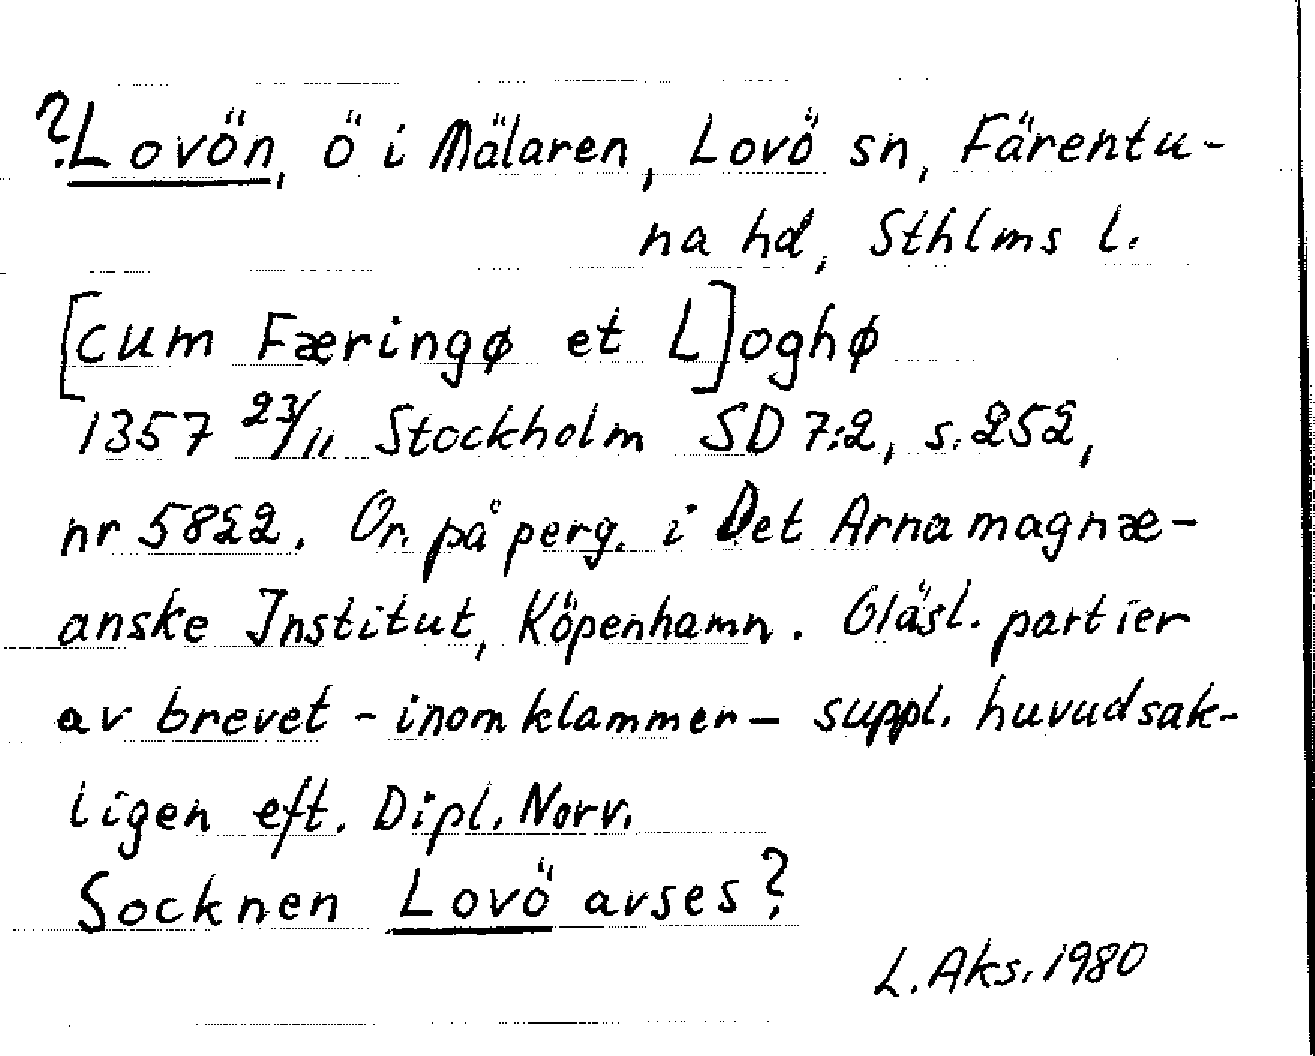 ?Lovön, ö i Mälaren, Lovö sn, Färentu-
na hd, Sthlms l.
[cum Færingø et L]oghø
1357 23/11 Stockholm SD 7:2, s. 252,
nr 5822. Or. på perg. i Det Arnamagnæ-
anske Institut, Köpenhamn. Oläsl. partier
av brevet - inom klammer - suppl. huvudsak-
ligen eft. Dipl. Norv.
Socknen Lovö avses?
L. Aks. 1980